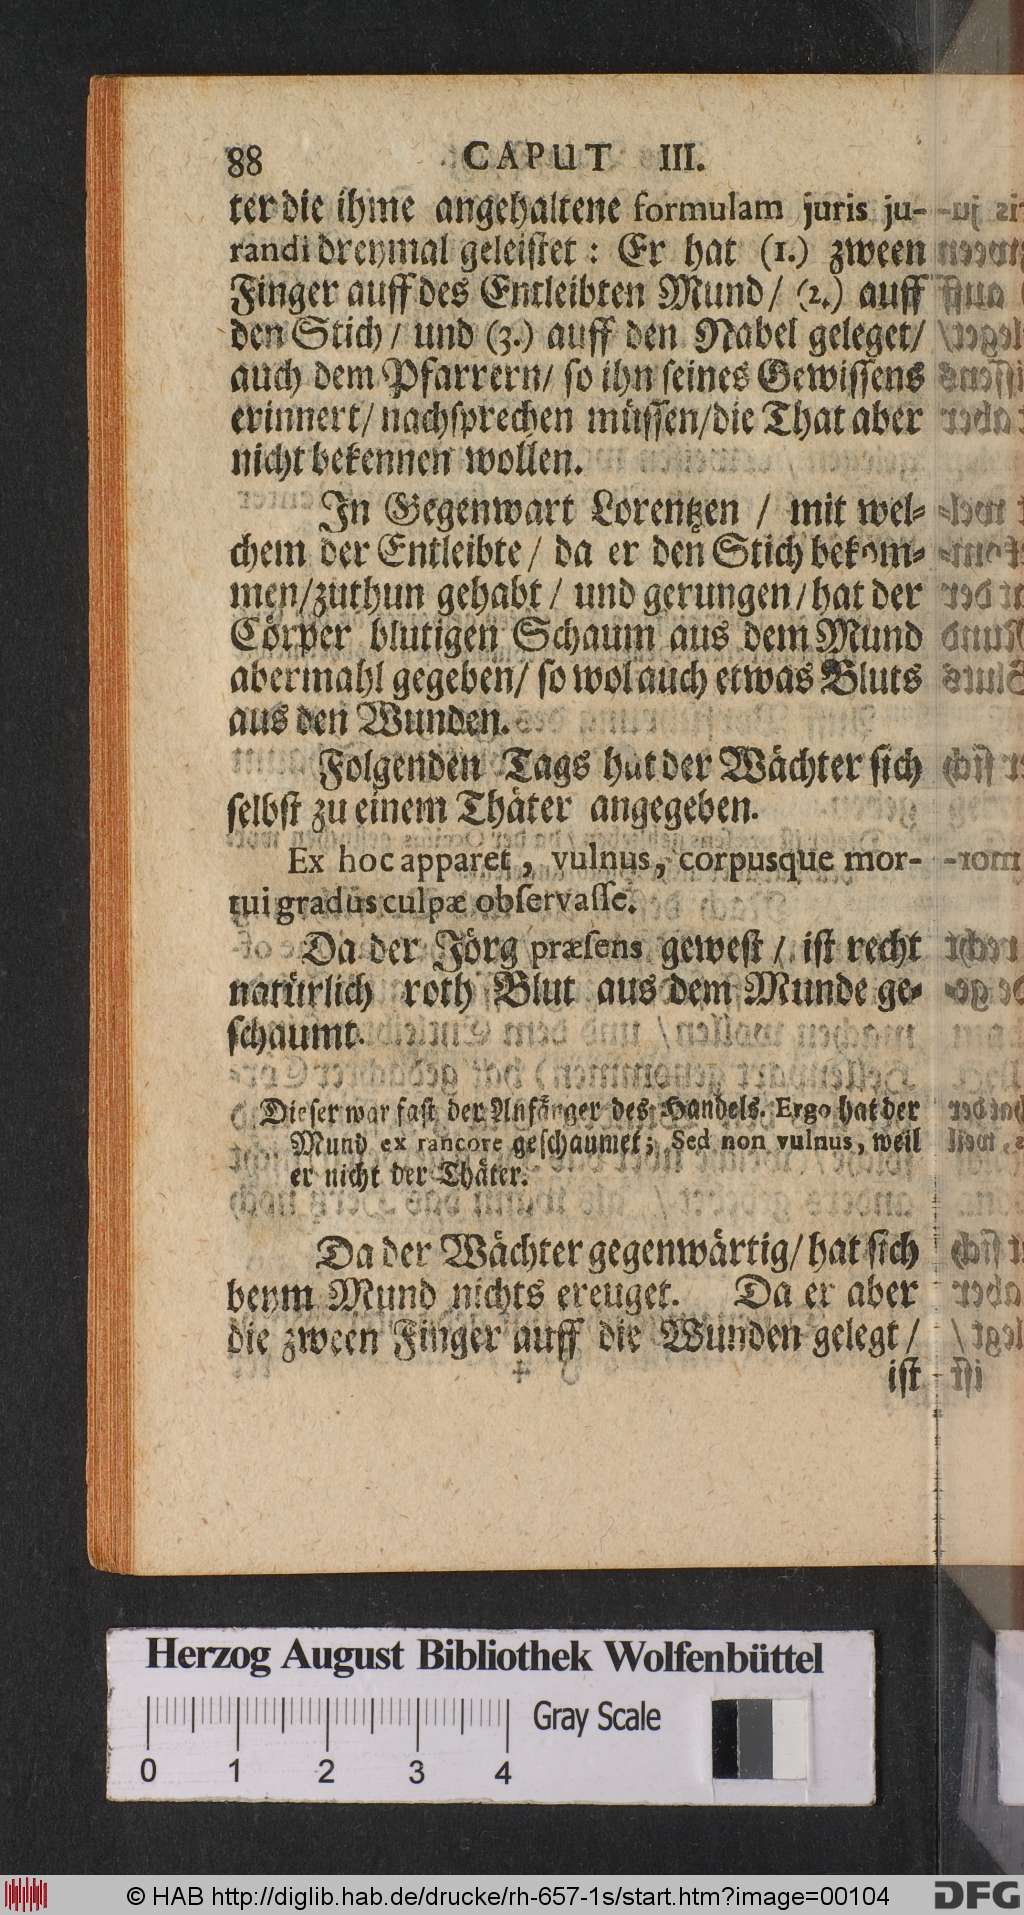 88 CAPUT III.
ter die ihme angehaltene formulam juris ju-
randi dreymal geleistet: Er hat (1.) zween
Finger auff des Entleibten Mund/ (2.) auff
den Stich/ und (3.) auff den Nabel geleget/
auch dem Pfarrern/ so ihn seines Gewissens
erinnert/ nachsprechen müssen/die That aber
nicht bekennen wollen.
In Gegenwart Lorentzen / mit wel-
chem der Entleibte/ da er den Stich bekom-
men/zuthun gehabt/ und gerungen/hat der
Cörper blutigen Schaum aus dem Mund
abermahl gegeben/ so wol auch etwas Bluts
aus den Wunden.
Folgenden Tags hat der Wächter sich
selbst zu einem Thäter angegeben.
Ex hoc apparet, vulnus, corpusque mor-
tui gradus culpæ obſervaſſe.
Da der Jörg præſens gewest / ist recht
natürlich roth Blut aus dem Munde ge-
schaumt.
Dieser war fast der Anfänger des Handels. Ergo hat der
Mund ex rancore geschaumet; Sed non vulnus, weil
er nicht der Thäter.
Da der Wächter gegenwärtig/ hat sich
beym Mund nichts ereuget. Da er aber
die zween Finger auff die Wunden gelegt/
ist
Herzog August Bibliothek Wolfenbüttel
Gray Scale
0 1 2 3 4
© HAB http://diglib.hab.de/drucke/rh-657-1s/start.htm?image=00104
DFG